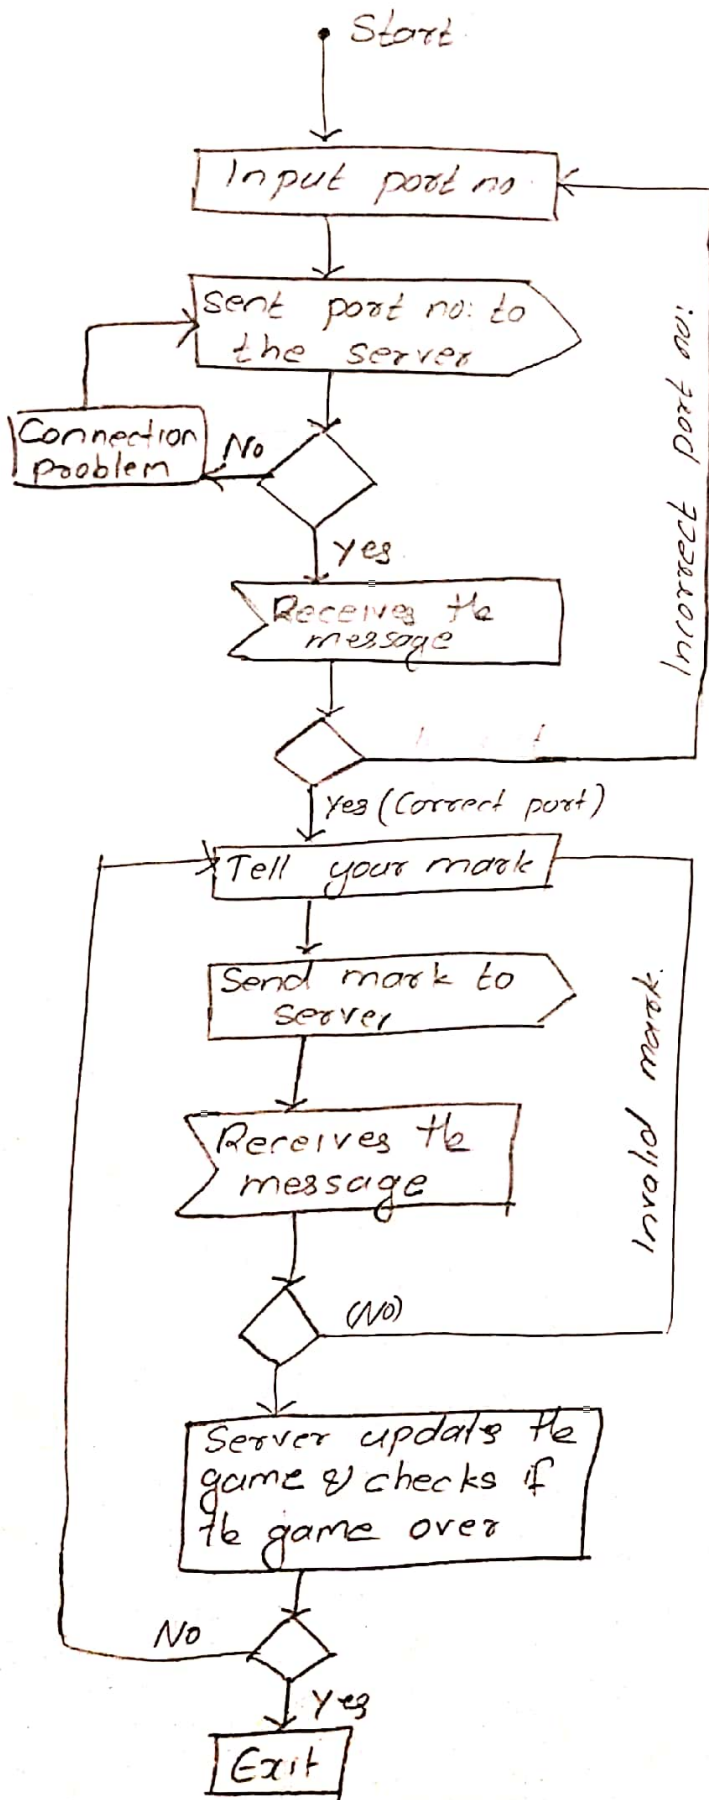 Start
Input port no
Sent port no: to
the server
Connection
problem
No
Yes
Receives the
message
Incorrect port no:
Yes (Correct port)
Tell your mark
Send mark to
server
Receives the
message
Invalid mark.
(No)
Server updats the
game & checks if
the game over
No
Yes
Exit